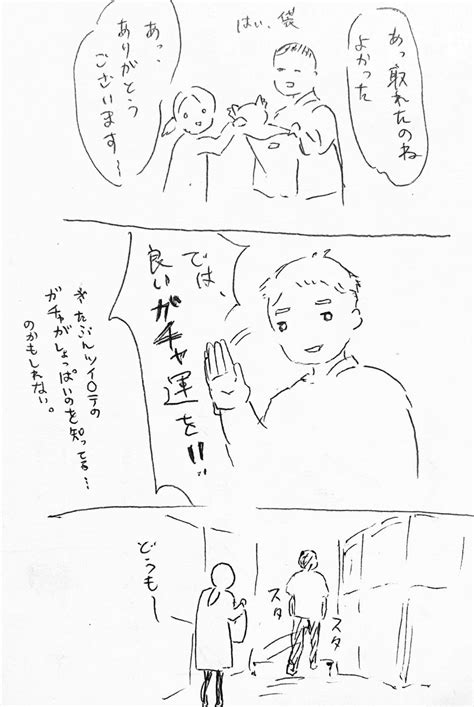 あっ取れたのね
よかった
はい、袋
あっ、
ありがとう
ございます〜
では、
良いガチャ運を!!
たぶんツイ○テの
ガチャがしょっぱいのを知ってる…
のかもしれない。
どうもー
スタ
スタ